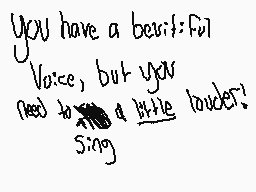 you have a beutiful
Voice, but you
need to a little louder!
sing